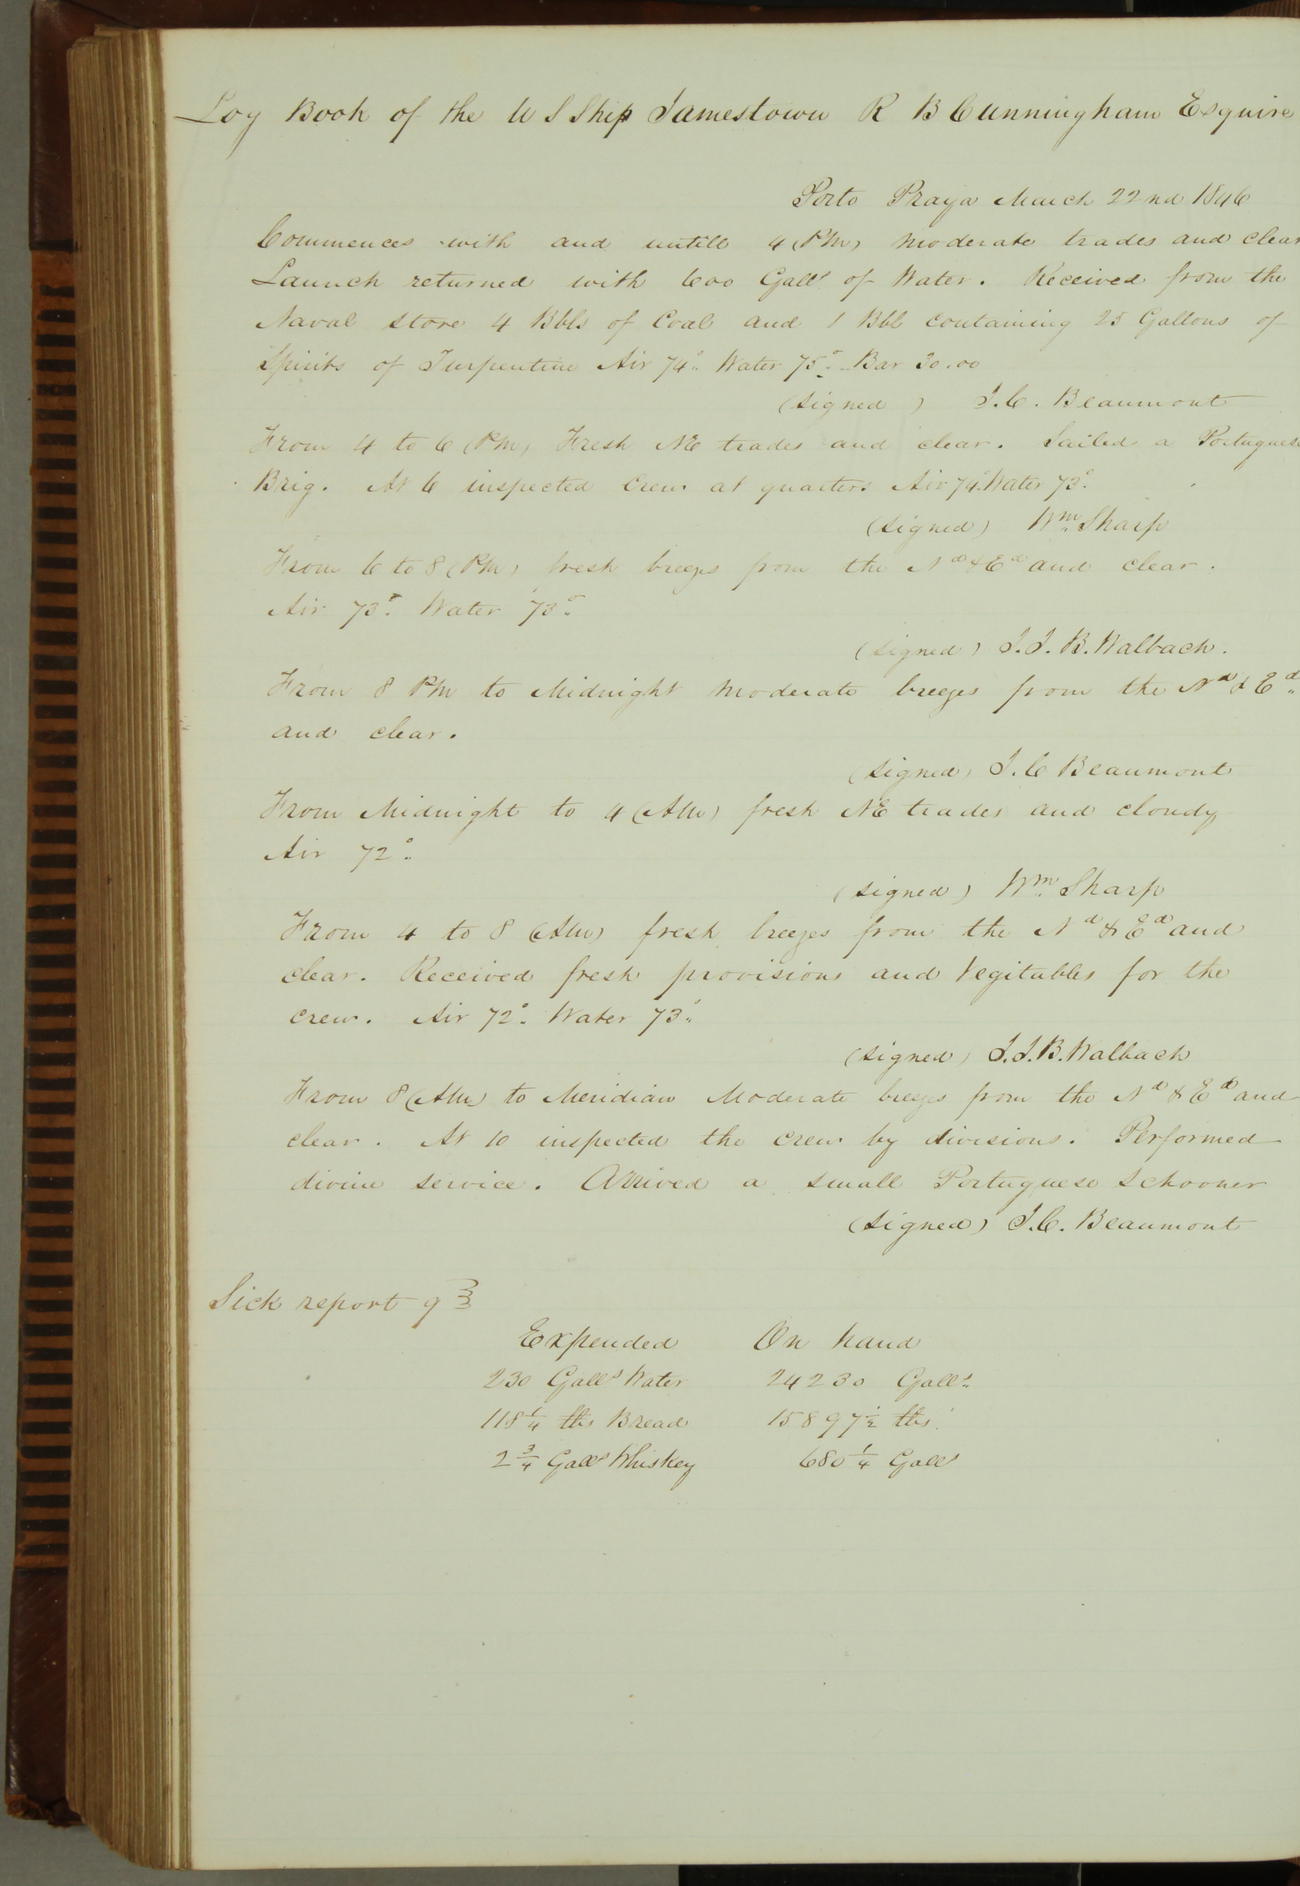 Log Book of the U S Ship Jamestown R B Cunningham Esquire
Porto Praya March 22nd 1846
Commences with and untill 4 (PM) moderate trades and clear
Launch returned with 600 Galls of Water. Received from the
Naval store 4 Bbls of Coal and 1 Bbl containing 25 Gallons of
Spirits of Turpentine Air 74° Water 75° Bar 30.00
(signed) J.C. Beaumont
From 4 to 6 (PM) Fresh NE trades and clear. Sailed a Portuguese
Brig. At 6 inspected Crew at quarters Air 74° Water 73°
(signed) Wm Sharp
From 6 to 8 (PM) fresh breezes from the Nd & Ed and clear.
Air 73° Water 73°
(signed) J.J.B. Walbach.
From 8 PM to Midnight moderate breezes from the Nd & Ed
and clear.
(signed) J.C Beaumont
From Midnight to 4 (AM) fresh NE trades and cloudy
Air 72°
(signed) Wm Sharp
From 4 to 8 (AM) fresh breezes from the Nd & Ed and
clear. Received fresh provisions and Vegitables for the
crew. Air 72° Water 73°
(signed) J.J.B. Walbach
From 8 (AM) to Meridian Moderate breezes from the Nd & Ed and
clear. At 10 inspected the crew by divisions. Performed
divine service. Arrived a small Portuguese Schooner
(signed) J.C. Beaumont
Sick report 9
Expended On hand
230 Galls Water 24230 Galls
118 1/4 lbs Bread 15897 1/2 lbs
2 3/4 Galls Whiskey 680 1/4 Galls